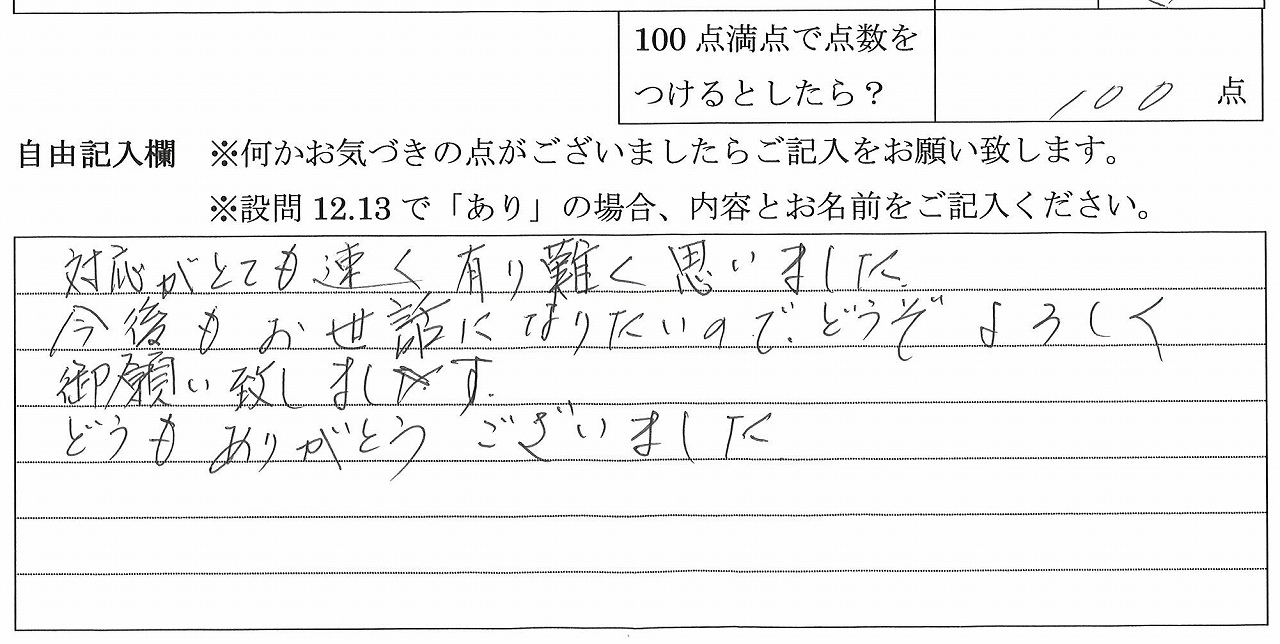 100点満点で点数を
つけるとしたら？
100 点
自由記入欄 ※何かお気づきの点がございましたらご記入をお願い致します。
※設問12.13で「あり」の場合、内容とお名前をご記入ください。
対応がとても速く有り難く思いました.
今後もお世話になりたいので.どうぞよろしく
御願い致します.
どうもありがとうございました